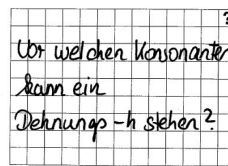 ?
Vor welchen Konsonanten
kann ein
Dehnungs-h stehen?